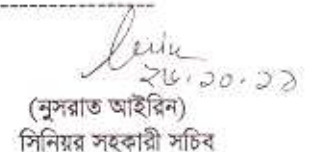 ২৬.১০.২১
(নুসরাত আইরিন)
সিনিয়র সহকারী সচিব